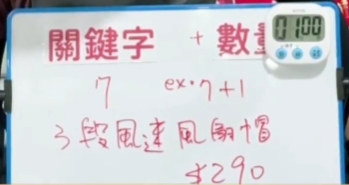 關鍵字 + 數
01:00
7 ex.7+1
3段風速風扇帽
$290